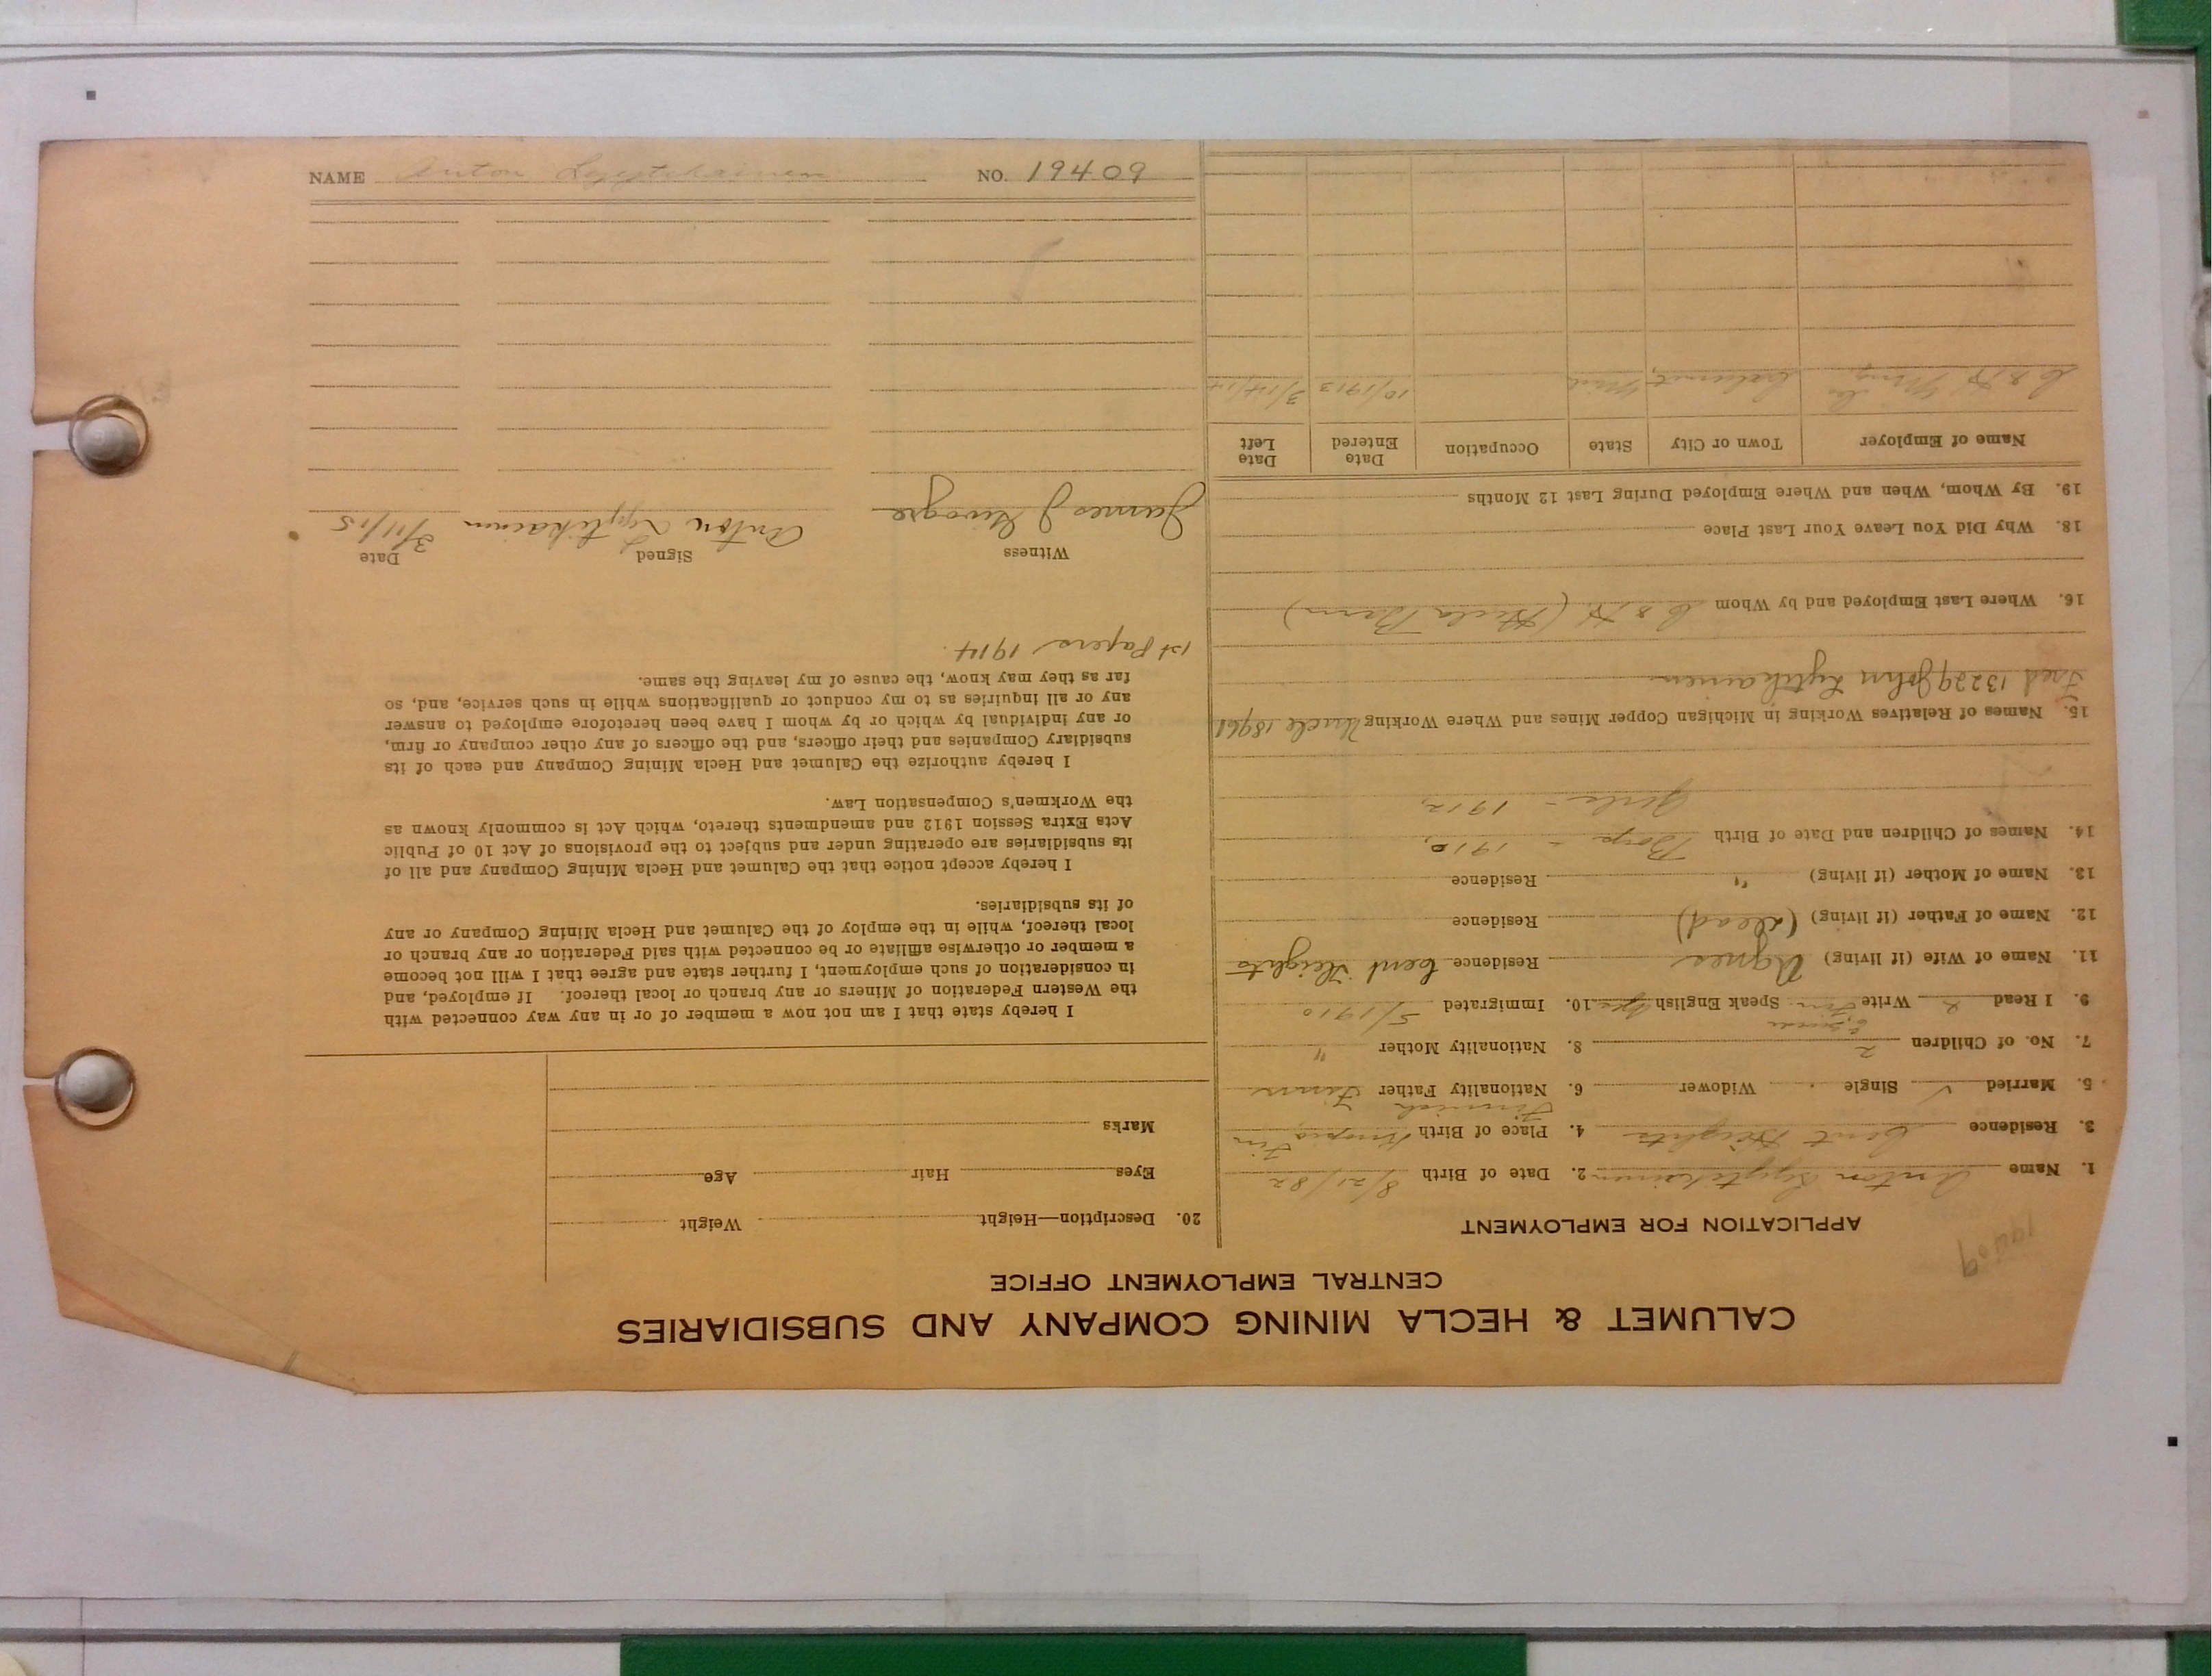 CALUMET & HECLA MINING COMPANY AND SUBSIDIARIES
CENTRAL EMPLOYMENT OFFICE
19409
APPLICATION FOR EMPLOYMENT
1. Name Anton Lyytikainen 2. Date of Birth 8/21/82
3. Residence Cent Heights 4. Place of Birth Kuopio Fin
Finnish
5. Married ✓ Single Widower 6. Nationality Father Finn
7. No. of Children 2 8. Nationality Mother "
9. I Read Write Speak English 10. Immigrated 5/1910
11. Name of Wife (if living) Agnes Residence Cent Heights
12. Name of Father (if living) (Dead) Residence
13. Name of Mother (if living) " Residence
14. Names of Children and Date of Birth Boys - 1910,
Girls - 1912
15. Names of Relatives Working in Michigan Copper Mines and Where Working Uncle 18961
Fred 13229 John Lytikainen
16. Where Last Employed and by Whom C & H (Hecla Barn)
18. Why Did You Leave Your Last Place
19. By Whom, When and Where Employed During Last 12 Months
Name of Employer Town or City State Occupation Date Entered Date Left
C & H Mng Co Calumet, Mich 10/1913 3/14/14
20. Description—Height Weight
Eyes Hair Age
Marks
I hereby state that I am not now a member of or in any way connected with
the Western Federation of Miners or any branch or local thereof. If employed, and
in consideration of such employment, I further state and agree that I will not become
a member or otherwise affiliate or be connected with said Federation or any branch or
local thereof, while in the employ of the Calumet and Hecla Mining Company or any
of its subsidiaries.
I hereby accept notice that the Calumet and Hecla Mining Company and all of
its subsidiaries are operating under and subject to the provisions of Act 10 of Public
Acts Extra Session 1912 and amendments thereto, which Act is commonly known as
the Workmen's Compensation Law.
I hereby authorize the Calumet and Hecla Mining Company and each of its
subsidiary Companies and their officers, and the officers of any other company or firm,
or any individual by which or by whom I have been heretofore employed to answer
any or all inquiries as to my conduct or qualifications while in such service, and, so
far as they may know, the cause of my leaving the same.
1st Papers 1914.
Witness Signed Date
James J Anton Lyytikainen 3/11/15
NAME Anton Lyytikainen NO. 19409